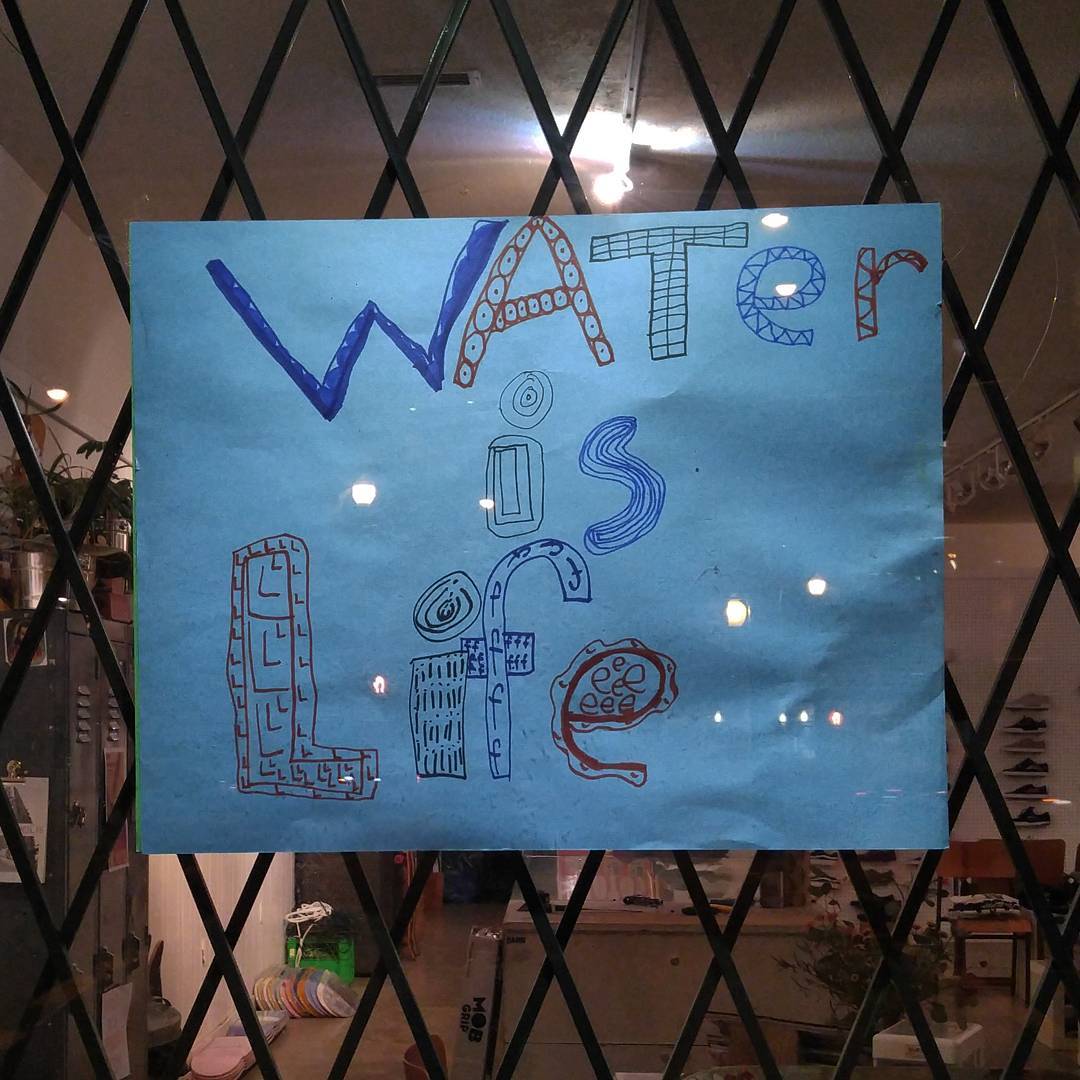 WATer
is
Life
MOB
GRIP